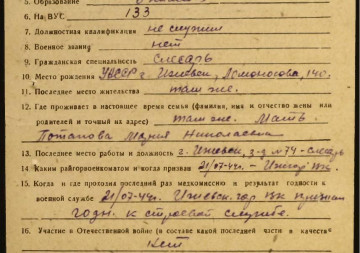 5. Образование
6. На ВУС 133
7. Должностная квалификация не служил
8. Военное звание нет
9. Гражданская специальность слесарь
10. Место рождения УАССР г. Ижевск, Ломоносова, 140.
11. Последнее место жительства там же.
12. Где проживает в настоящее время семья (фамилия, имя и отчество жены или
родителей и точный их адрес) там же. Мать
Потапова Мария Николаевна
13. Последнее место работы и должность г. Ижевск, з-д № 74 - слесарь
14. Каким райгорвоенкоматом и когда призван 21/07-42г.
15. Когда и где проходил последний раз медкомиссию и результат годности к
военной службе 21/07-42г. Ижевск. гор ВК признан
годн. к строевой службе.
16. Участие в Отечественной войне (в составе какой последней части в качестве
нет